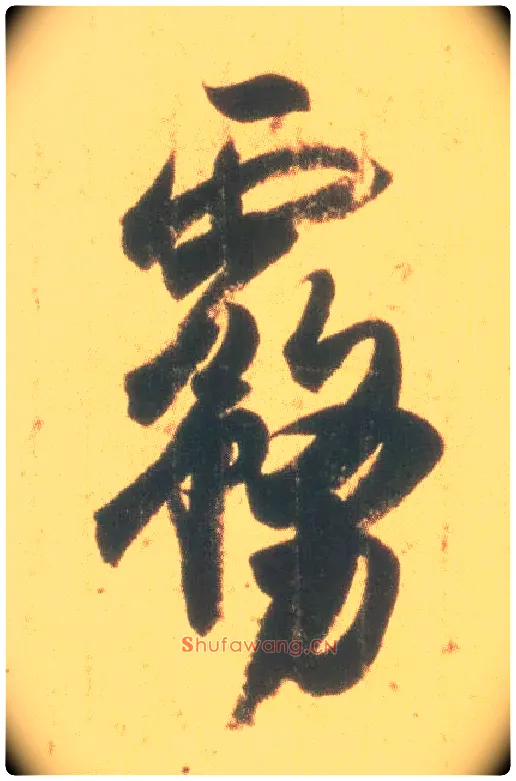 霧
Shufawang.CN